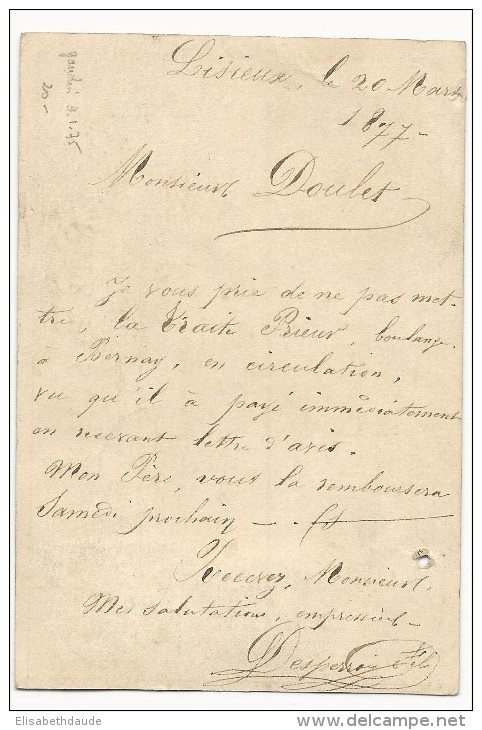 Lisieux, le 20 Mars
1877-
Monsieur Doulet
Je vous prie de ne pas met-
tre, la traite Prieur, boulang.
à Bernay, en circulation,
vu qu'il à payé immédiatement
en recevant lettre d'avis.
Mon Père, vous la remboursera
Samedi prochain
Recevez, Monsieur,
Mes salutations, empressées
Elisabethdaude
www.delcampe.net